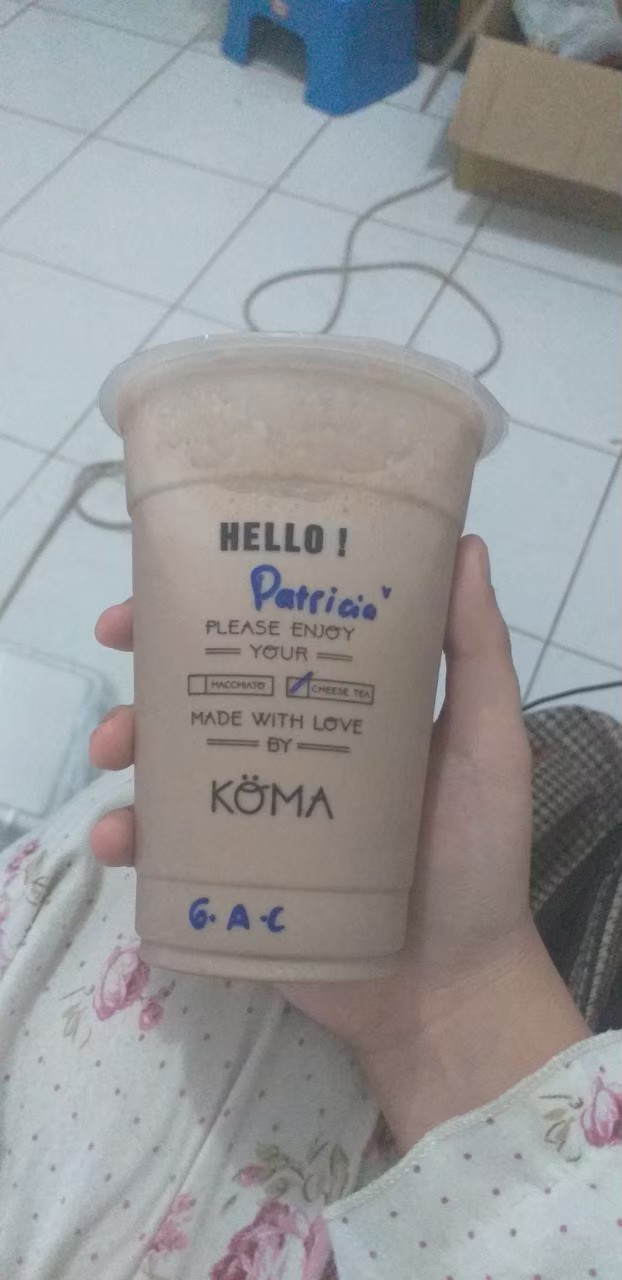 HELLO !
Patricia
PLEASE ENJOY
YOUR
MACCHIATO CHEESE TEA
MADE WITH LOVE
BY
KÖMA
G. A .C